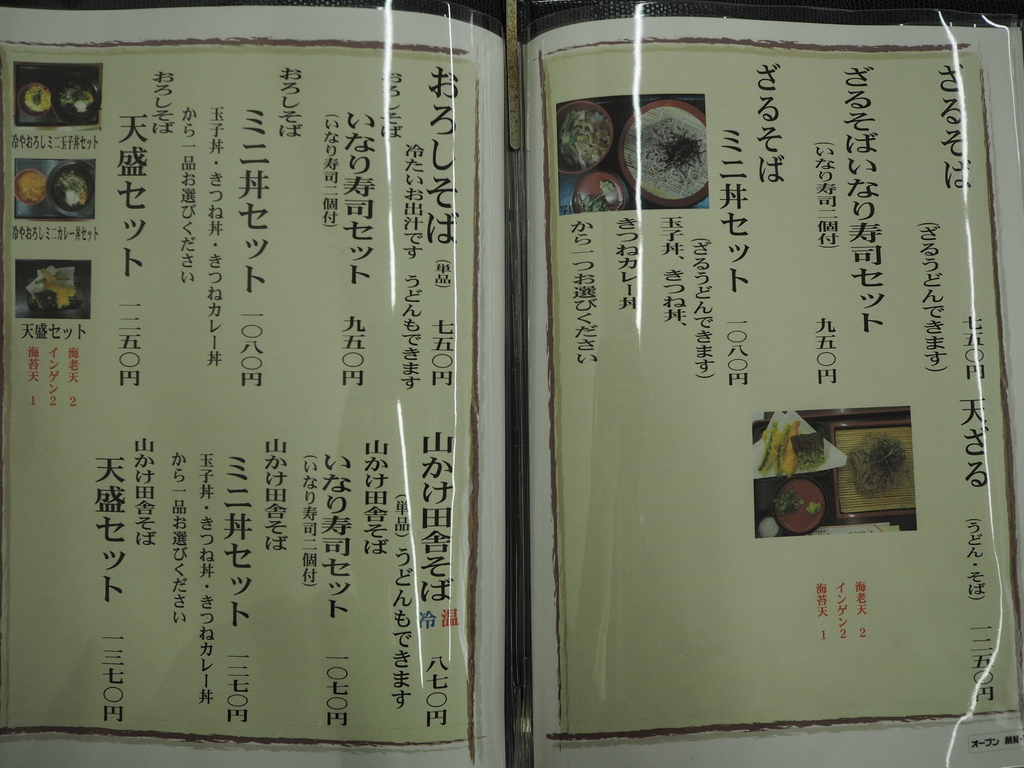 ざるそば
(ざるうどんできます)
七五〇円
ざるそばいなり寿司セット
(いなり寿司二個付)
九五〇円
ざるそば
ミニ丼セット 一〇八〇円
(ざるうどんできます)
玉子丼、きつね丼、
きつねカレー丼
から一つお選びください
天ざる
(うどん・そば)
一二五〇円
海老天 2
インゲン2
海苔天 1
オープン MN-
おろしそば (単品) 七五〇円
冷たいお出汁です うどんもできます
おろしそば
いなり寿司セット 九五〇円
(いなり寿司二個付)
おろしそば
ミニ丼セット 一〇八〇円
玉子丼・きつね丼・きつねカレー丼
から一品お選びください
おろしそば
天盛セット 一二五〇円
冷やおろしミニ玉子丼セット
冷やおろしミニカレー丼セット
天盛セット
海老天 2
インゲン2
海苔天 1
山かけ田舎そば 温 冷 八七〇円
(単品) うどんもできます
山かけ田舎そば
いなり寿司セット 一〇七〇円
(いなり寿司二個付)
山かけ田舎そば
ミニ丼セット 一二七〇円
玉子丼・きつね丼・きつねカレー丼
から一品お選びください
山かけ田舎そば
天盛セット 一三七〇円